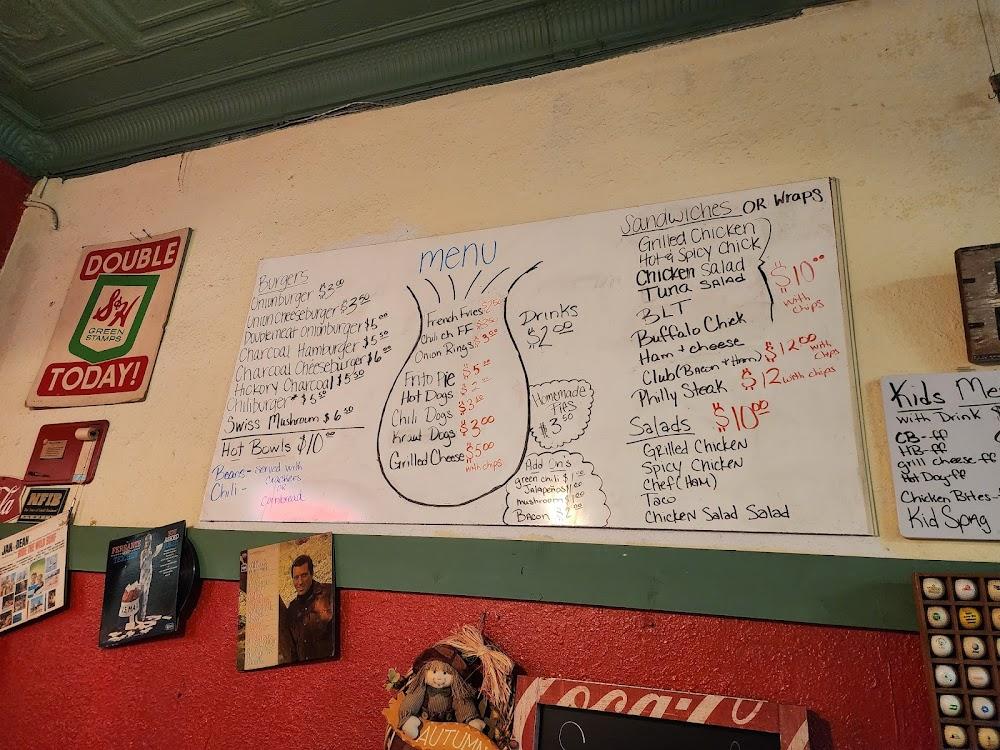 DOUBLE
S&H
GREEN
STAMPS
TODAY!
menu
Burgers
Onionburger $3.00
Onion Cheeseburger $3.50
Doublemeat Onionburger $5.00
Charcoal Hamburger $5.50
Charcoal Cheeseburger $6.00
Hickory Charcoal $5.50
Chiliburger $5.50
Swiss Mushroom $6.50
Hot Bowls $10.00
Beans - served with
Chili - Crackers
or
Cornbread
French Fries
Chili ch FF
Onion Rings $3.00
Frito Pie $5
Hot Dogs
Chili Dogs
Kraut Dogs $3.00
Grilled Cheese $5.00
with chips
Drinks
$2.00
Homemade
Pies
$3.50
Add Ons
green chili $1.00
Jalapeños
mushroom
Bacon $2.00
Sandwiches OR Wraps
Grilled Chicken
Hot & Spicy Chick
Chicken Salad
Tuna Salad
BLT
$10.00
with
chips
Buffalo Chck
Ham + cheese
Club (Bacon + Ham) $12.00 with
chips
Philly Steak $12 with chips
Salads $10.00
Grilled Chicken
Spicy Chicken
Chef (HAM)
Taco
Chicken Salad Salad
Kids Me
with Drink $
CB-ff
HB-ff
grill cheese-ff
Hot Dog-ff
Chicken Bites-
Kid Spag
NFIB
JAN & DEAN
FERRANTE
AUTUMN
Coca-Co